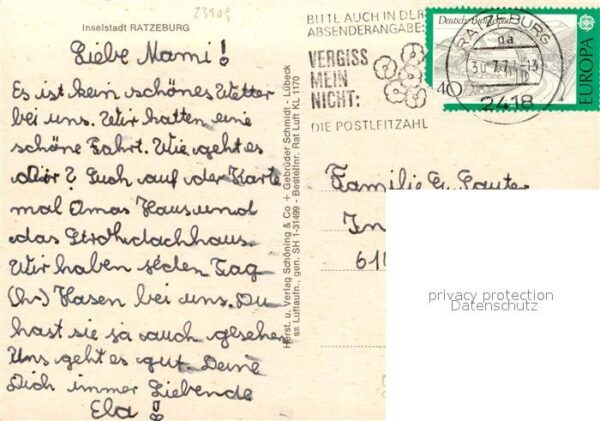 23909
Inselstadt RATZEBURG
Liebe Mami!
Es ist kein schönes Wetter
bei uns. Wir hatten eine
schöne Fahrt. Wie geht es
Dir? Such auf der Karte
mal Omas Haus und
das Strohdachhaus.
Wir haben jeden Tag
(hr) Hasen bei uns. Du
hast sie ja auch gesehen
Uns geht es gut. Deine
Dich immer Liebende
Ela!
Herst. u. Verlag Schöning & Co + Gebrüder Schmidt - Lübeck
ss Luftaufn., gen. SH 1-31499 - Bestellnr. Rat Luft KL 1170
BITTE AUCH IN DER
ABSENDERANGABE:
VERGISS
MEIN
NICHT:
DIE POSTLEITZAHL
RATZEBURG
da
30.-7.77-13
2418
Deutsche Bundespost
40
EUROPA
Familie G.
In
privacy protection
Datenschutz